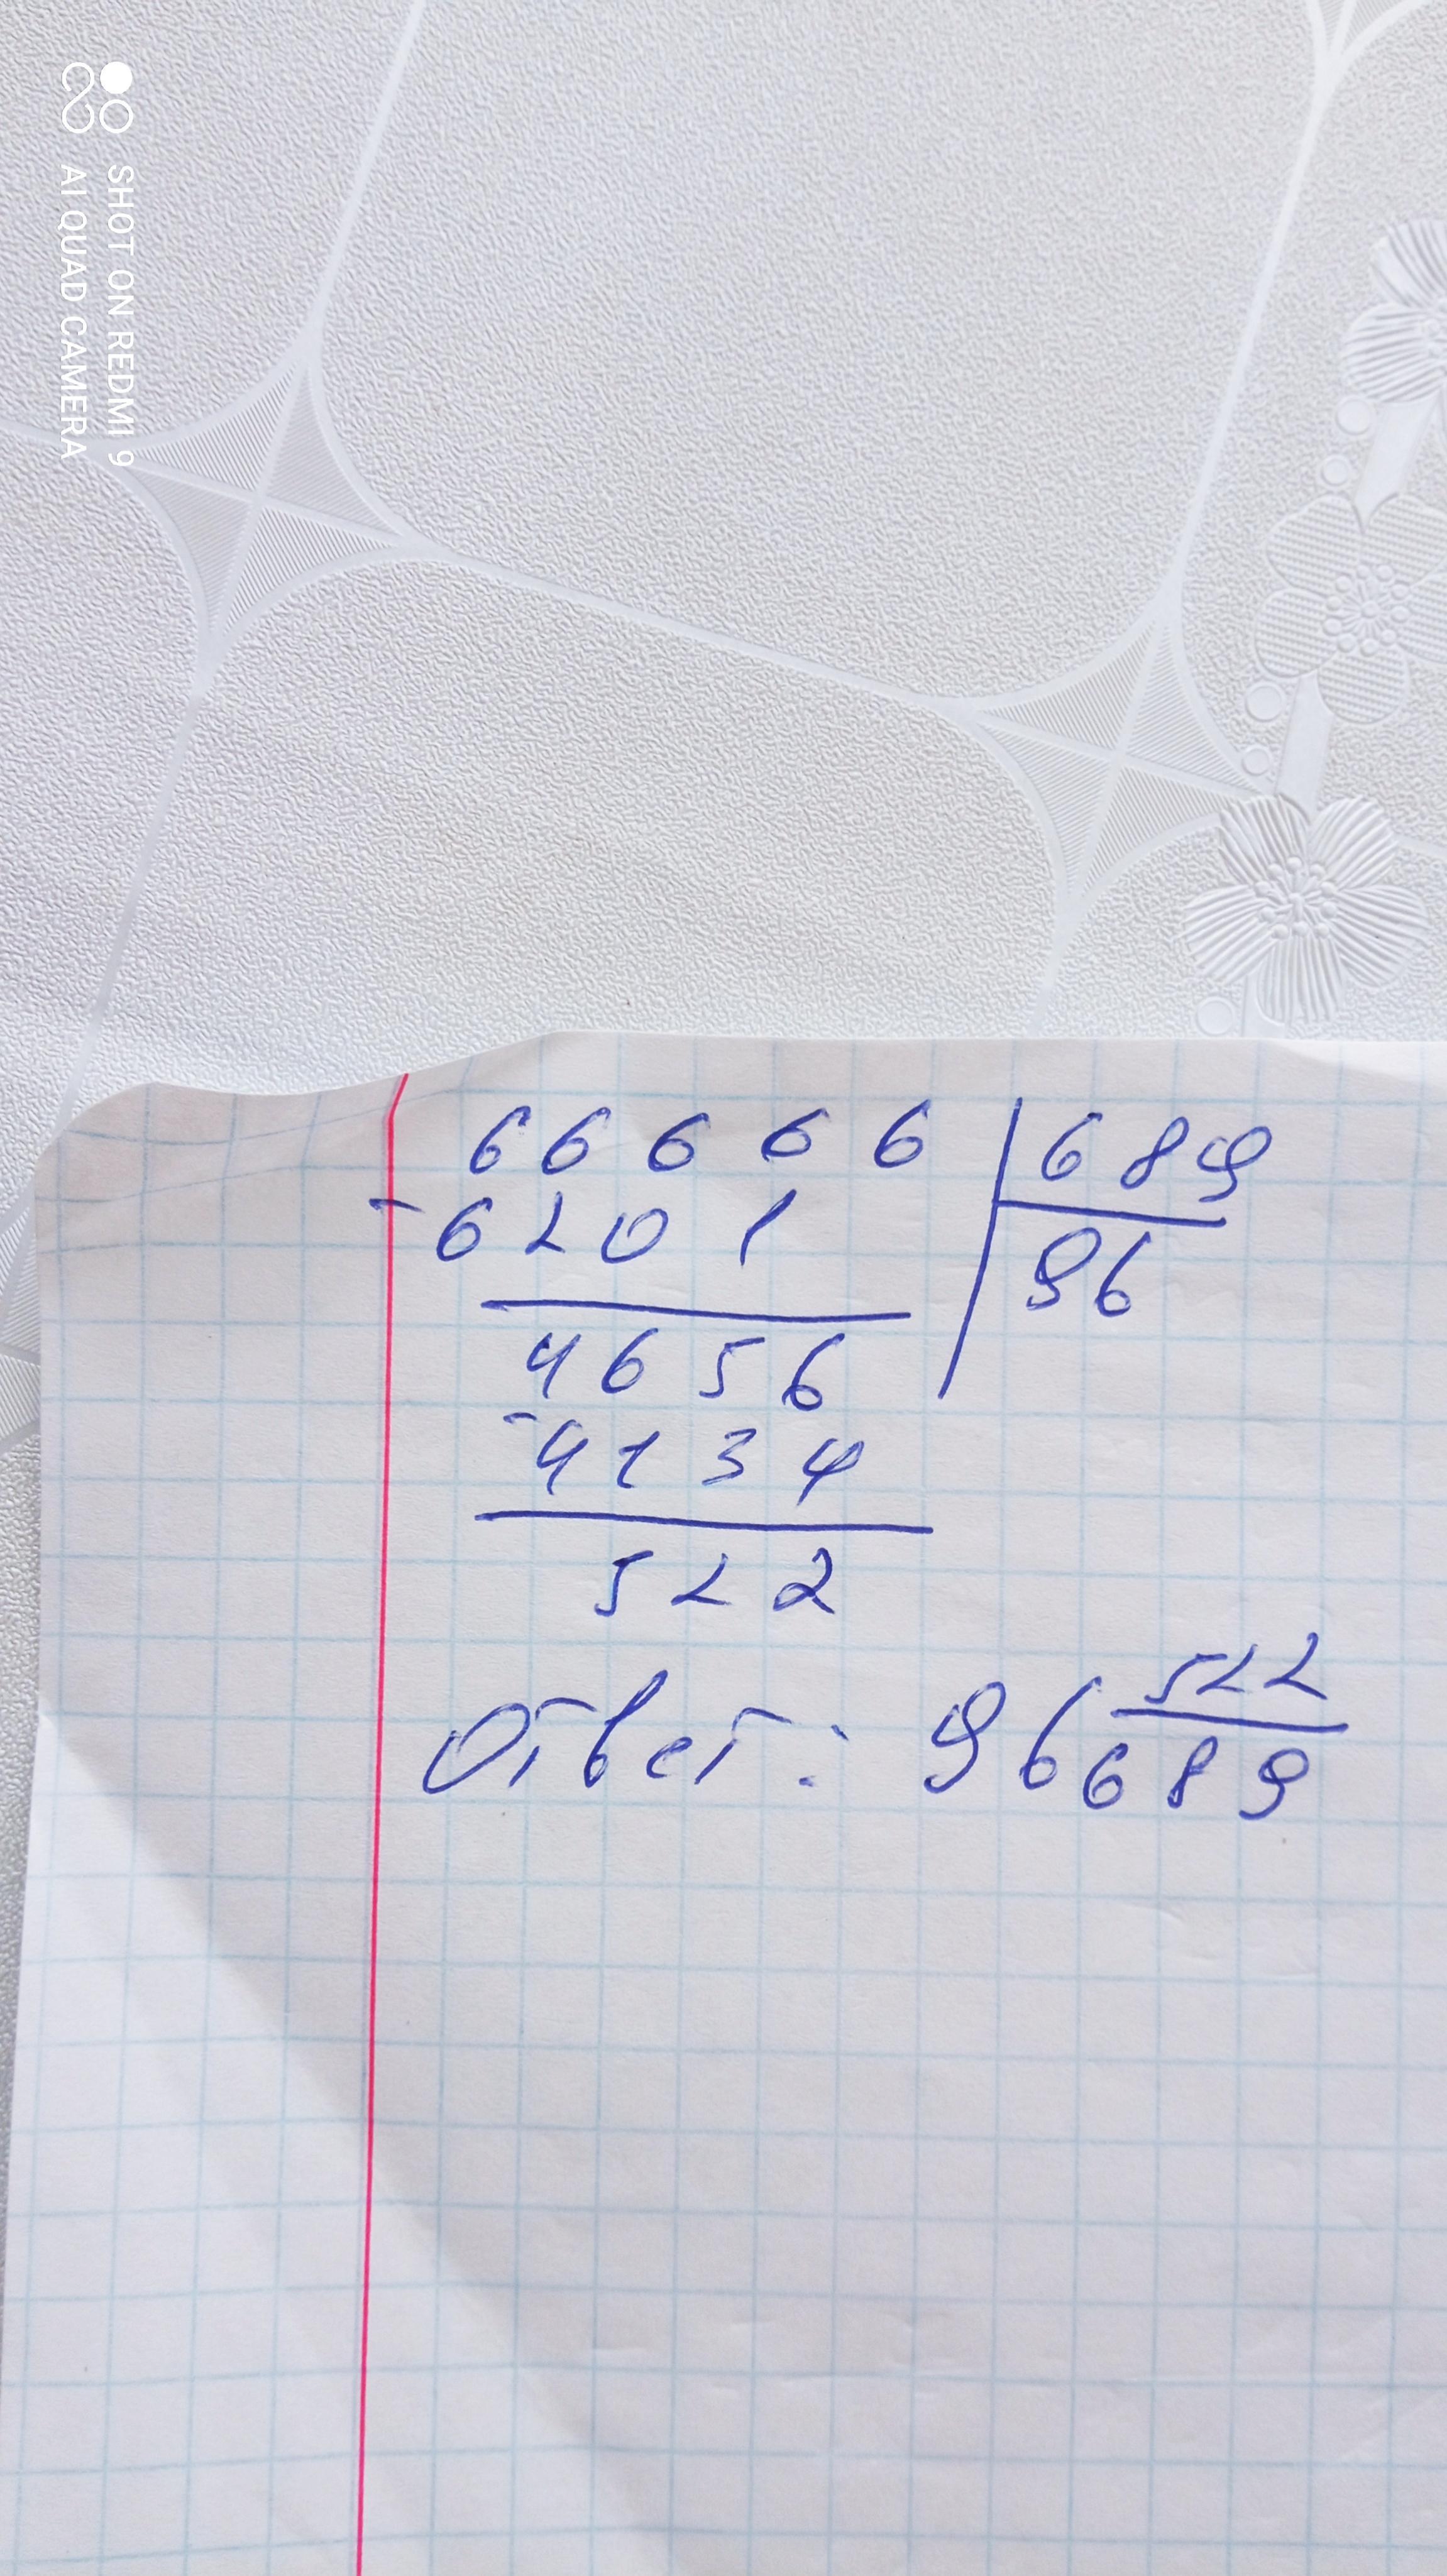 SHOT ON REDMI 9
AI QUAD CAMERA
66666 | 689
- 6201 | 96
4656
- 4134
522
Ответ: 96 522/689